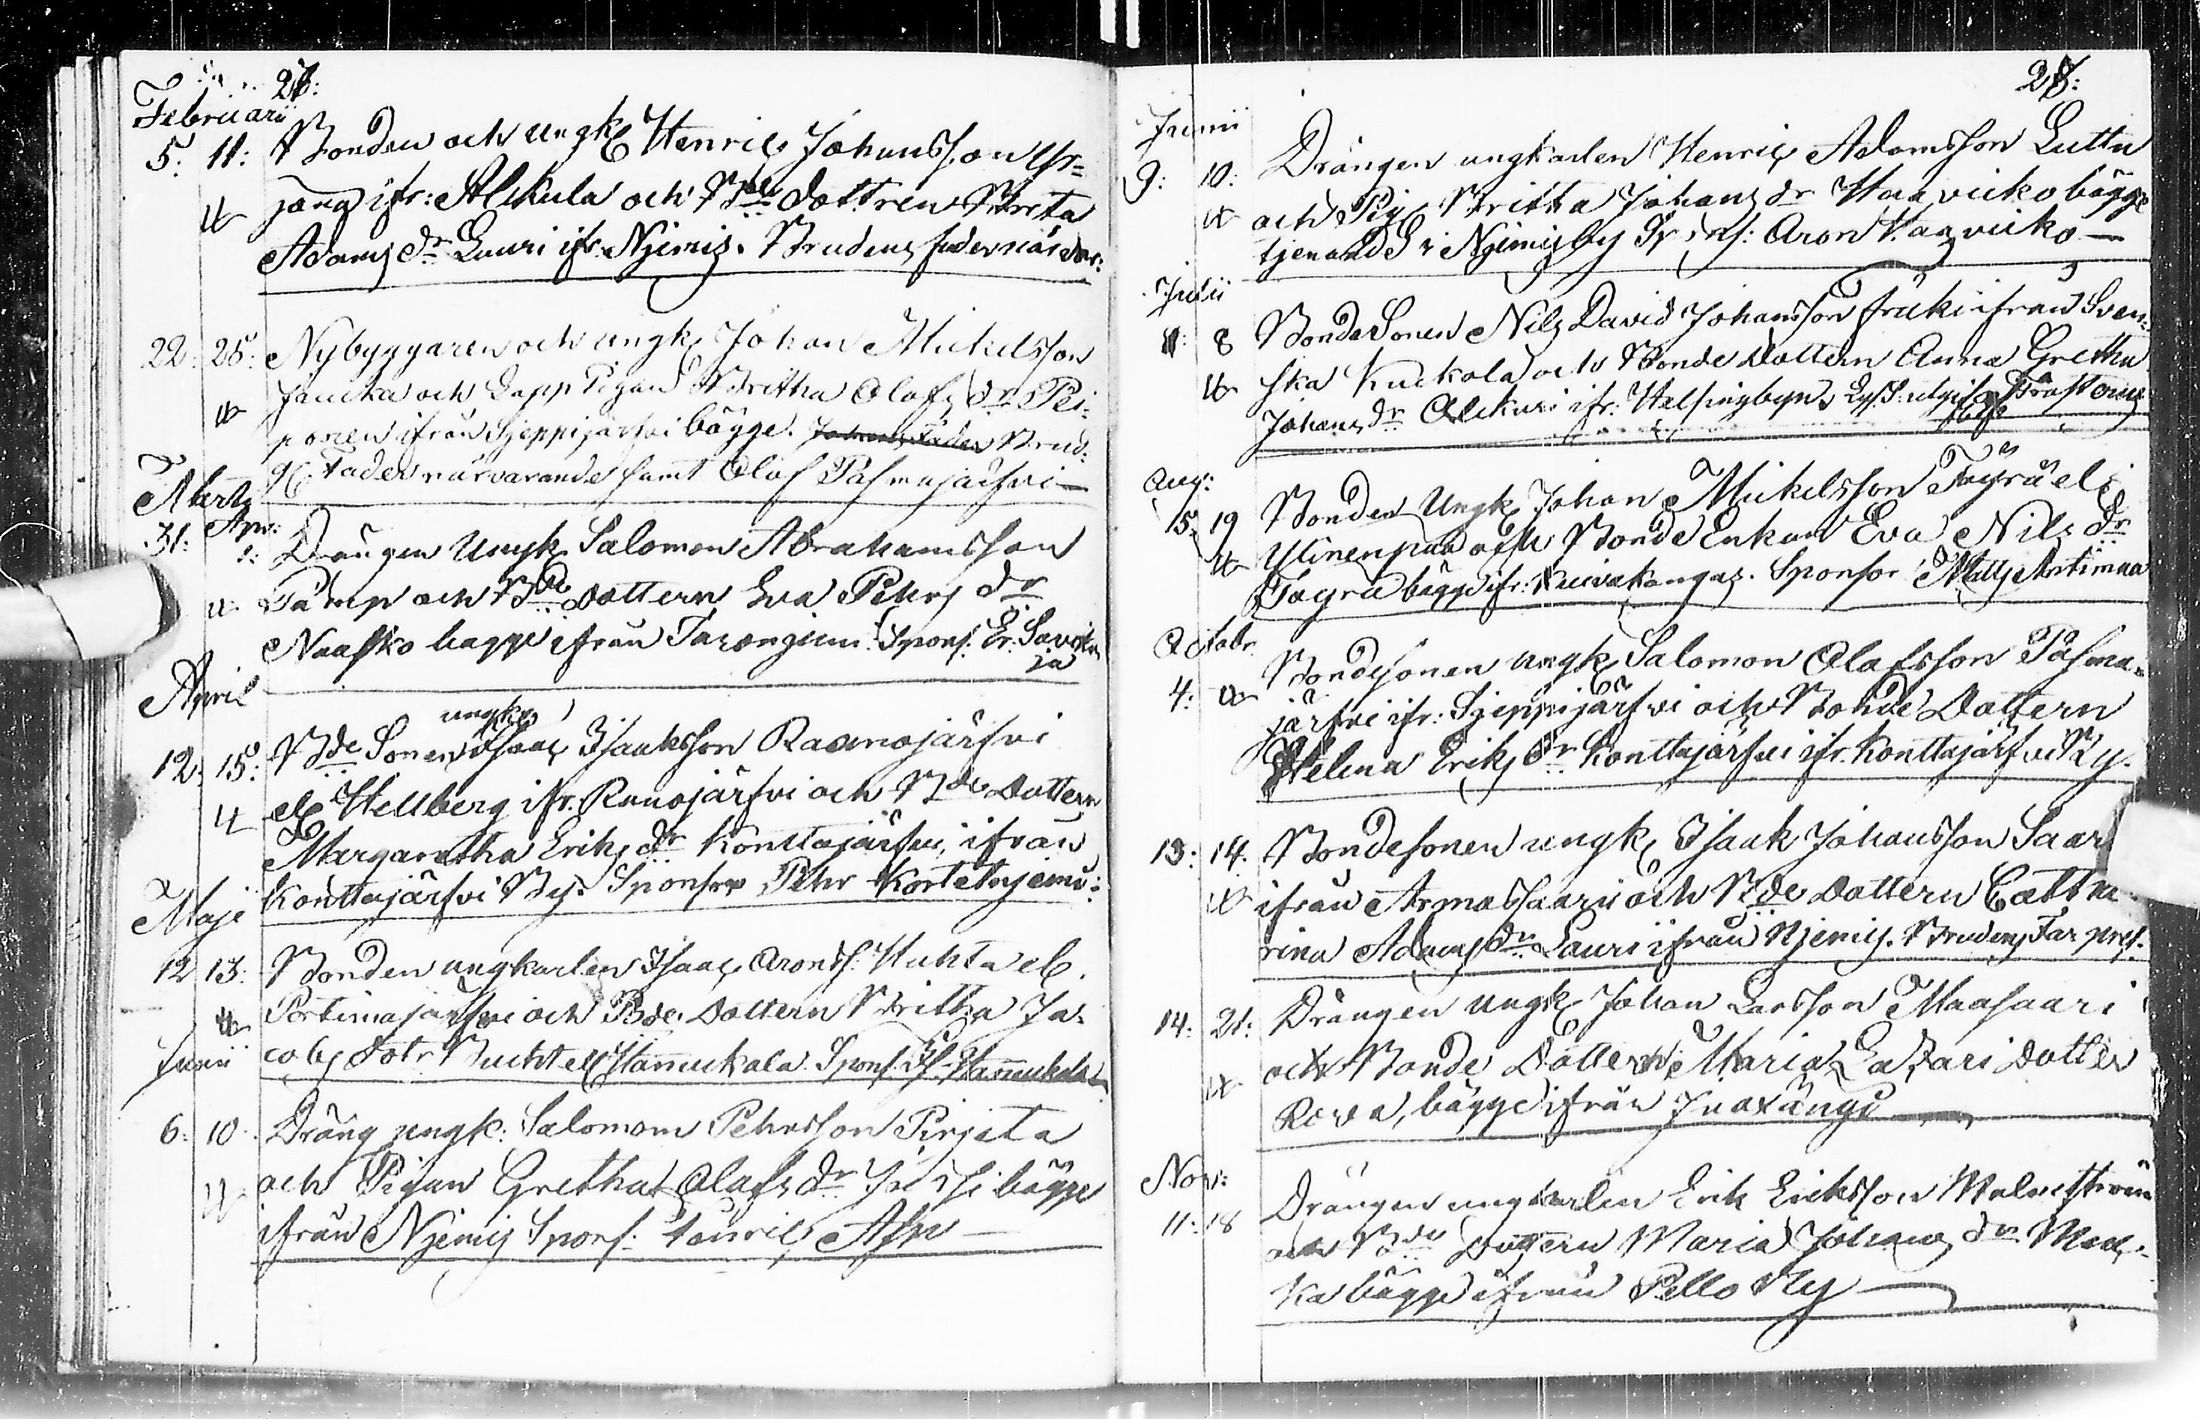 27:
Februarii
5: 11: Bonden och ungk Henric Johansson Yr-
janq ifr: Alkula och Bde dottren Brita
Adams dr Lauri ifr. Njemis. Brudens fader närvar:
22. 25. Nybyggaren och ungk Johan Mickelsson
Jaucka och Lapp Pigan Britha Olofs dr Pei-
ponen ifrån Sjeppijärfvi bägge. Brud:
Fader närvarande samt Olof Pasmajärfvi
Martz
31: Apr:
1: Drängen Ungk Salomon Abrahamsson
Pamp och Bde Dottern Eva Pehrs dr
Naasko bägge ifrån Tarangien: Spons. Er: Saviku
ja
April
ungk
12. 15: Bde Sonen Isaac Isaksson Raanojärfvi
ell Hellberg ifr. Ranojärfvi och Bde Dottern
Margaretha Eriks dr Konttajärfvi, ifrån
Konttajärfvi By. Sponsor Pehr Kortetnjemi:
Maji
12 13: Bonden ungkarlen Isaac Aronss: Huhta ell.
Portimojärfvi och Bde. Dottern Britha Ja-
cobs dotr Bucht ell Hannukala. Spons. Is. Hannukala
Junii
6: 10. Dräng ungk: Salomon Pehrsson Pirjeta
och Pigan Gretha Olofs dr Jussi bägge
ifrån Njemis Spons: Henric Asp
28:
Junii
9: 10: Drängen ungkarlen Henric Adamsson Luttu
och Pig Britta Johans dr Haavicko bägge
tjenande i Njemis by Fr. pres: Aron Haavicko
Julii
8 Bonde Sonen Nils David Johansson Fräki ifrån Sven-
ska Kuckola och Bonde dottern Anna Gretha
Johans dr Alckuri ifr: Helsingbyn. Lys. S: utgifne
Aug:
15. 19 Bonden Ungk Johan Mickelsson Töyrä ell
Ylinenpää och Bonde Enkan Eva Nils dr
Töyrä bägge ifr: Kuivakangas. Sponsor Matts Antimaa
Octobr
4: Bondesonen ungk Salomon Olofsson Pasma-
järfvi ifr: Sjeppijärfvi och Bonde Dottern
Helena Eriks dr Konttajärfvi ifr. Konttajärfvi By.
13: 14. Bondesonen ungk Isaak Johansson Saar
ifrån Armassaari och Bde Dottern Catha
rina Adams dr Lauri ifrån Njemis. Brudens Far pres.
14: 21: Drängen ungk Johan Larsson Maasaari
och Bonde Dottern Maria Lazari dotter
Rova, bägge ifrån Juoxangi
Nov:
11: 18 Drängen ungkarlen Erik Ericksson Malmström
och Bde Dottern Maria Johans dr Mat-
ka bägge ifrån Pello By